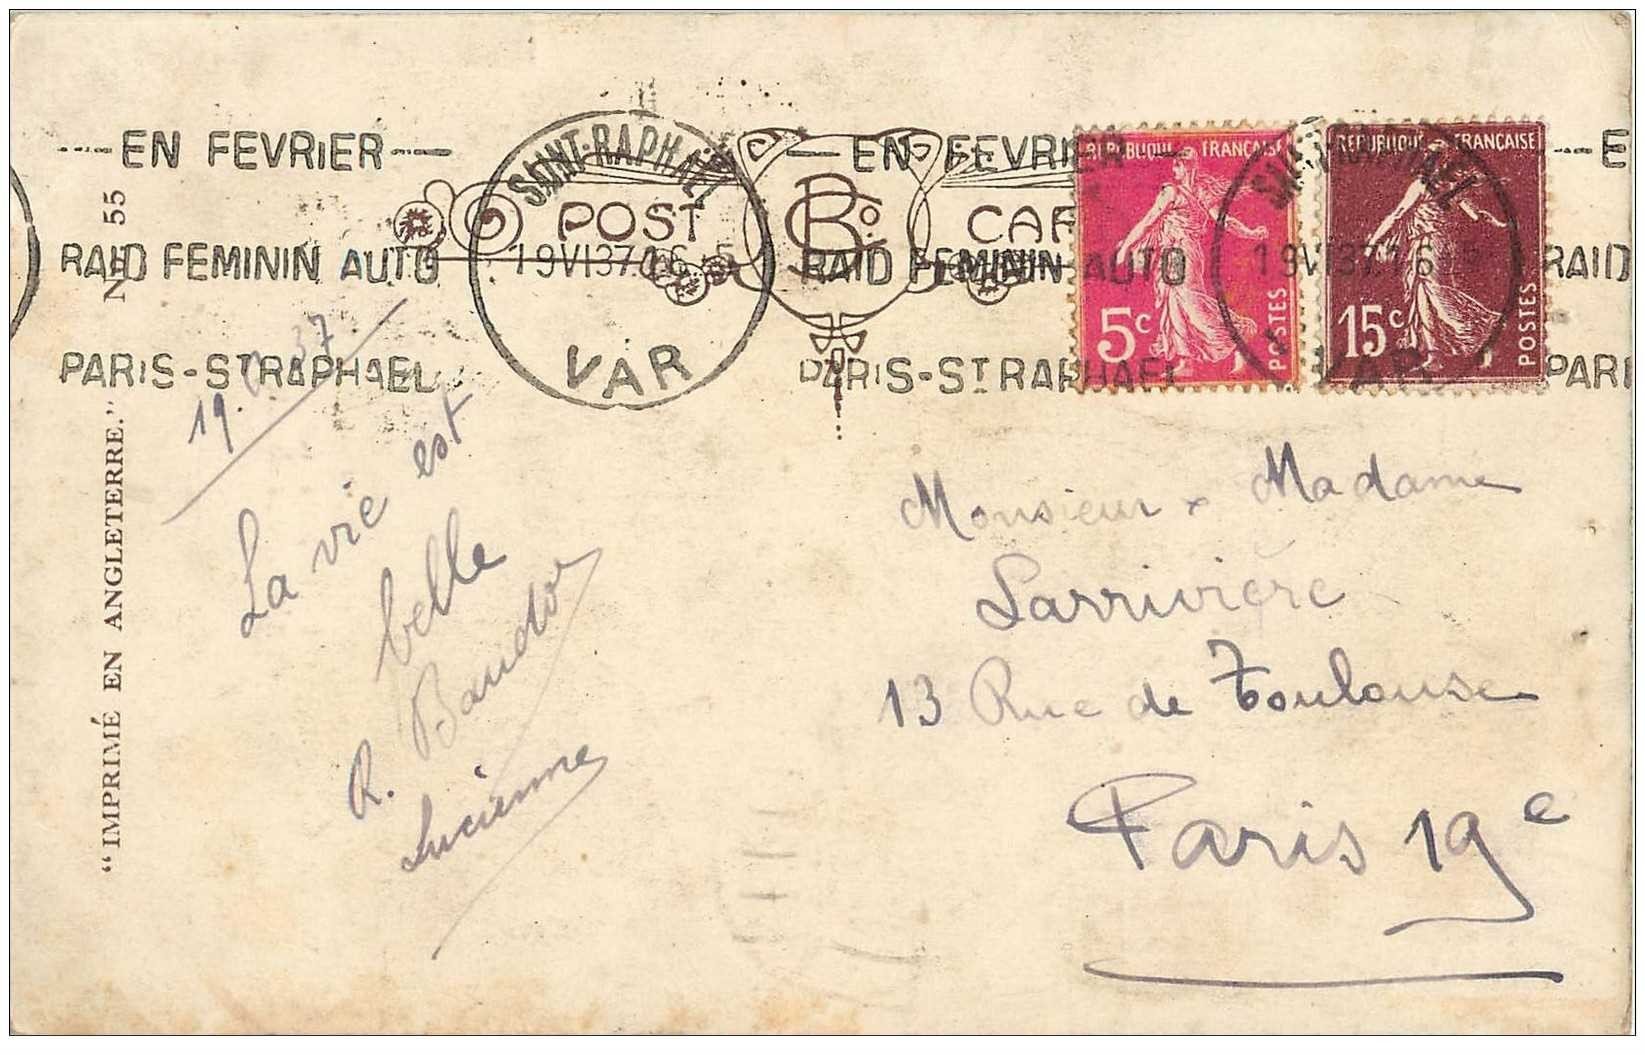 EN FEVRIER
RAID FEMININ AUTO
PARIS-ST RAPHAEL
SAINT-RAPHAEL
19 VI 37
VAR
POST
B Co
CAR
EN FEVRIER
RAID FEMININ AUTO
PARIS-ST RAPHAEL
REPUBLIQUE FRANÇAISE
5c
POSTES
REPUBLIQUE FRANÇAISE
15c
POSTES
SAINT-RAPHAEL
19 VI 37
VAR
E
RAID
PARI
"IMPRIMÉ EN ANGLETERRE." No 55
19. 37
La vie est
belle
R. Baudot
Lucienne
Monsieur x Madame
Larrivière
13 Rue de Toulouse
Paris 19e